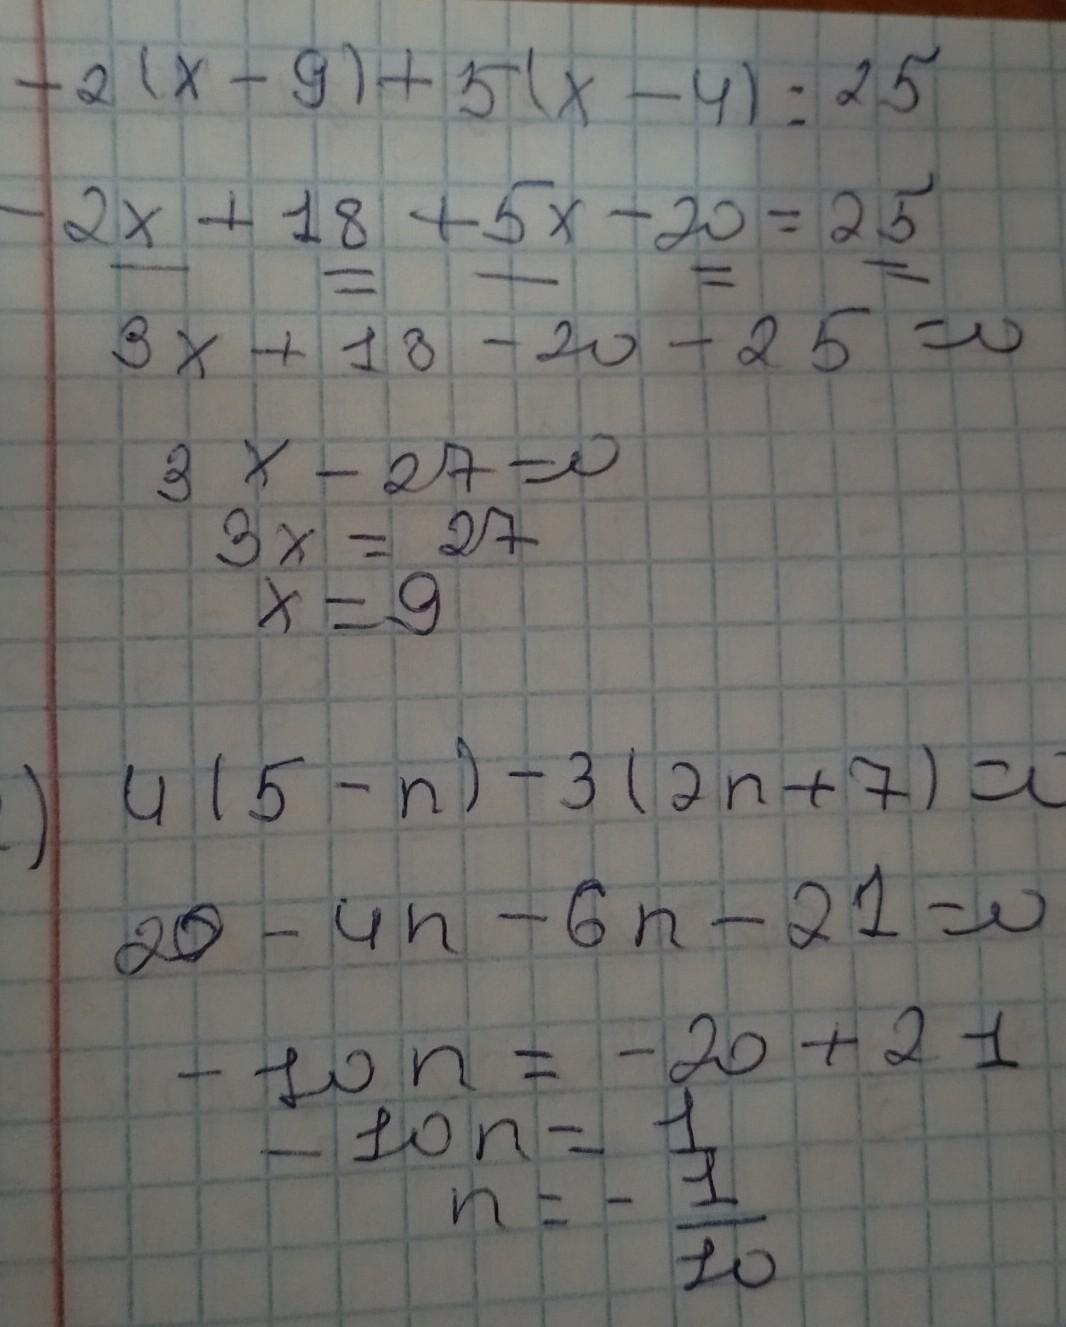 -2(x-9)+5(x-4)=25
-2x+18+5x-20=25
3x+18-20-25=0
3x-27=0
3x=27
x=9
) 4(5-n)-3(2n+7)=0
20-4n-6n-21=0
-10n=-20+21
-10n=1
n=-1/10